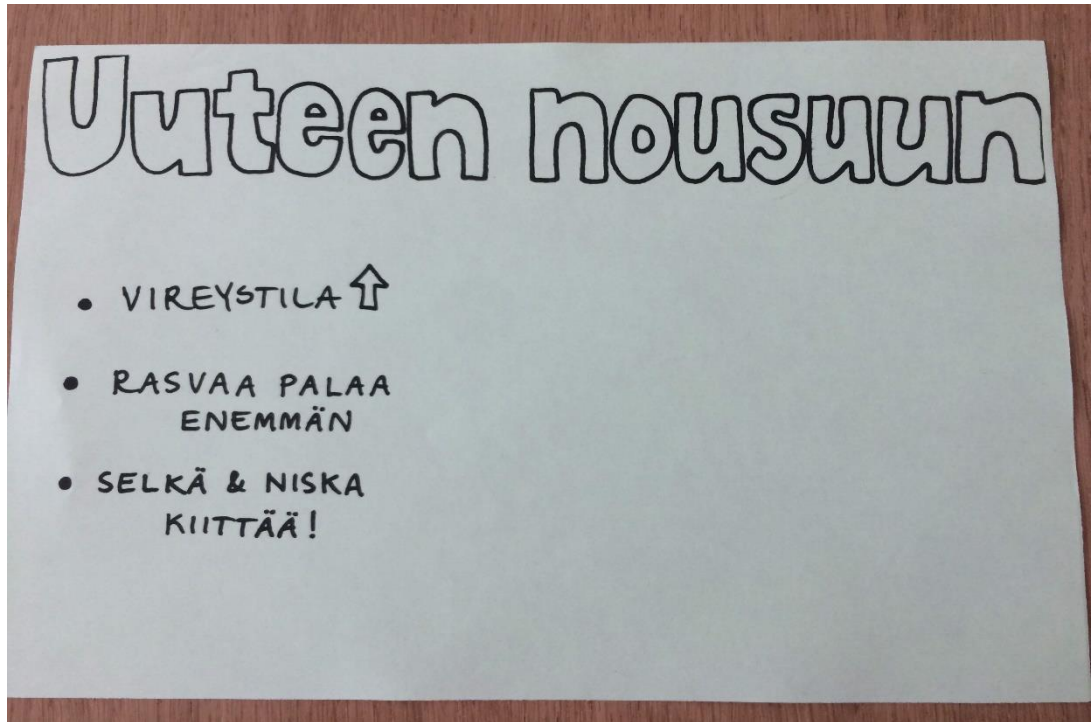 Uuteen nousuun
• VIREYSTILA ⇧
• RASVAA PALAA
ENEMMÄN
• SELKÄ & NISKA
KIITTÄÄ!